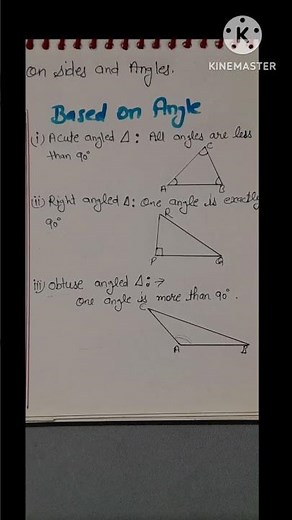 KINEMASTER
on sides and Angles.
Based on Angle
(i) Acute angled Δ: All angles are less
than 90°
C
A B
(ii) Right angled Δ: One angle is exactly
90°
R
P Q
(iii) Obtuse angled Δ: →
One angle is more than 90°.
C
A B